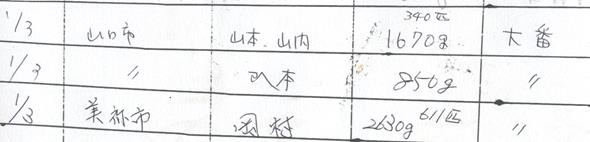 1/3 山口市 山本、山内 340匹 1670g 大番
1/3 〃 山本 850g 〃
1/3 美祢市 岡村 2630g 611匹 〃